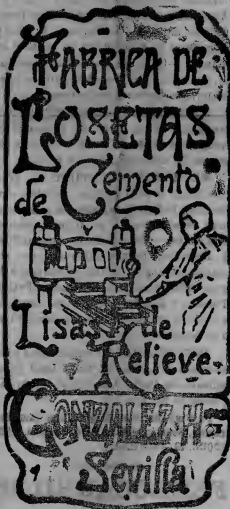 FABRICA DE
LOSETAS
de Cemento
Lisas y de
Relieve.
GONZALEZ Hos
Sevilla